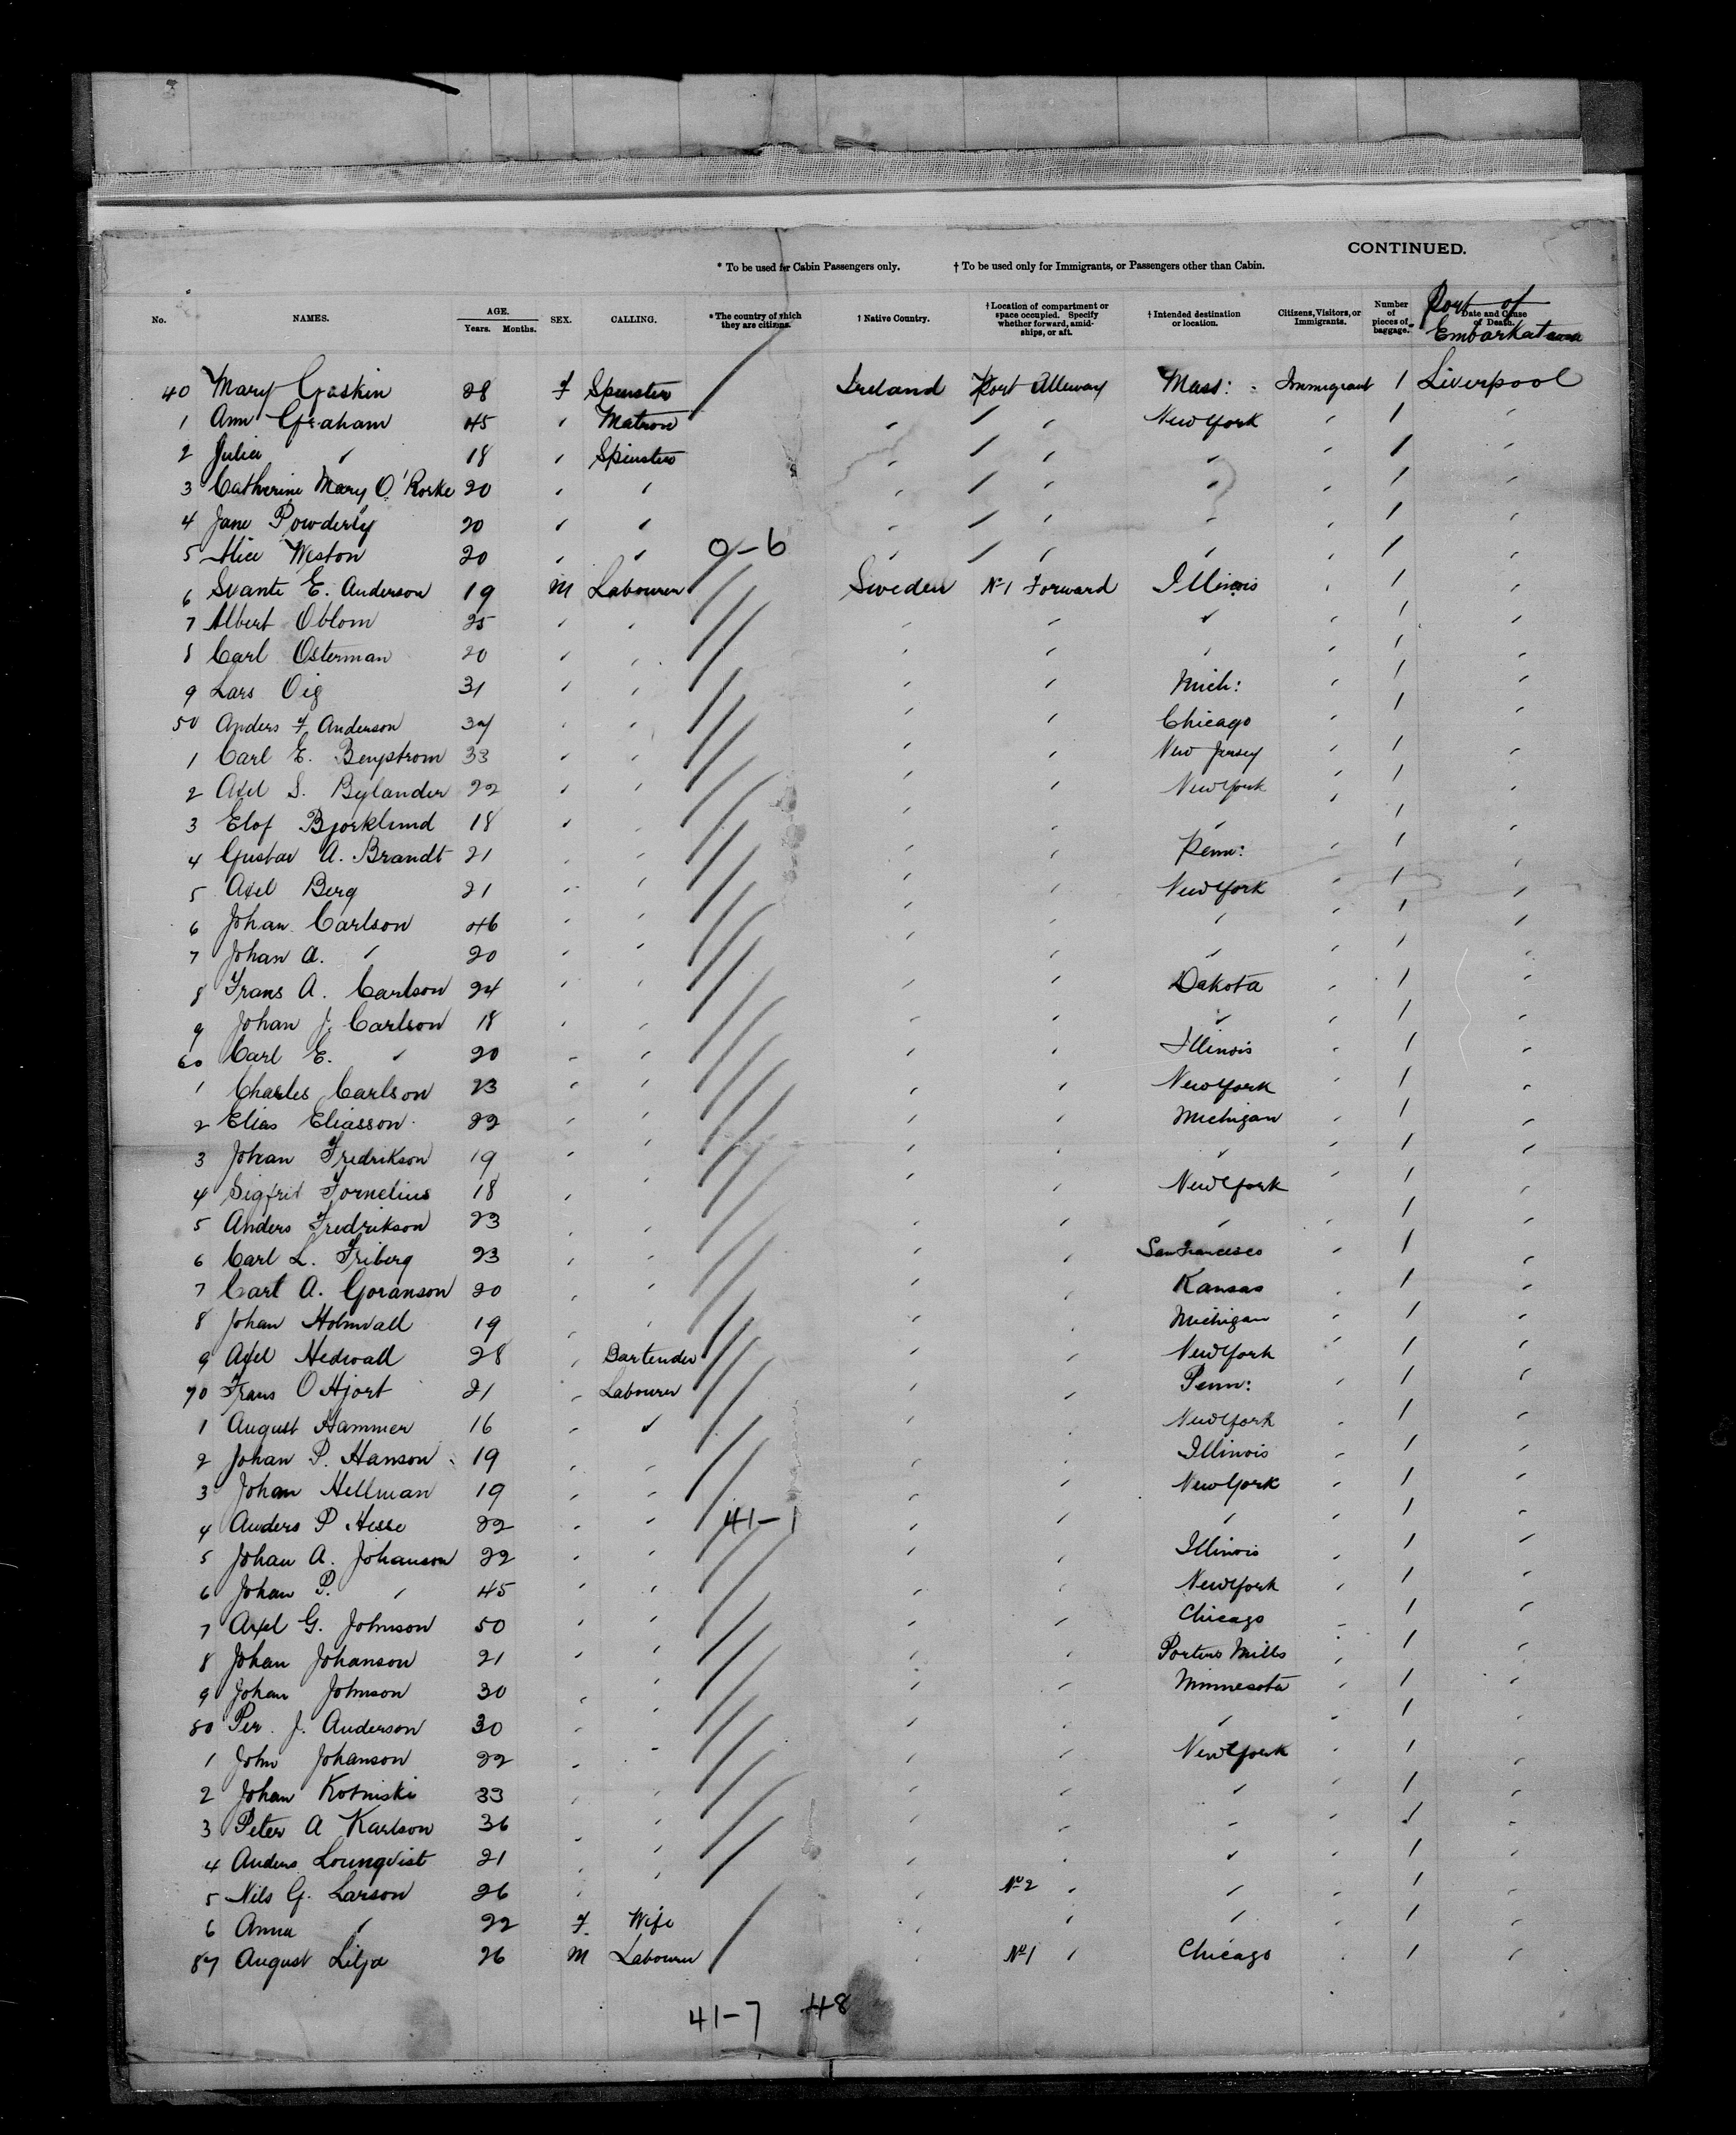 CONTINUED.
* To be used for Cabin Passengers only. † To be used only for Immigrants, or Passengers other than Cabin.
No. NAMES. AGE. Years. Months. SEX. CALLING. * The country of which they are citizens. † Native Country. † Location of compartment or space occupied. Specify whether forward, amidships, or aft. † Intended destination or location. Citizens, Visitors, or Immigrants. Number of pieces of baggage. Date and Cause of Death. Port of Embarkation
40 Mary Gaskin 28 F Spinster Ireland Port Alleway Mass: Immigrant 1 Liverpool
1 Ann Graham 45 " Matron " / " New York " 1 "
2 Julia " 18 " Spinster " / " " " 1 "
3 Catherine Mary O'Rorke 20 " " " / " " " 1 "
4 Jane Powderly 20 " " " / " " " 1 "
5 Alice Weston 20 " " 0-6 " / " " " 1 "
6 Svante E. Anderson 19 M Labourer Sweden No 1 Forward Illinois " 1 "
7 Albert Oblom 25 " " " " " " 1 "
8 Carl Osterman 20 " " " " " " 1 "
9 Lars Oig 31 " " " " Mich: " 1 "
50 Anders F. Anderson 37 " " " " Chicago " 1 "
1 Carl E. Bengstrom 33 " " " " New Jersey " 1 "
2 Axel S. Bylander 22 " " " " New York " 1 "
3 Elof Bjorklund 18 " " " " " " 1 "
4 Gustav A. Brandt 21 " " " " Penn: " 1 "
5 Axel Berg 21 " " " " New York " 1 "
6 Johan Carlson 46 " " " " " " 1 "
7 Johan A. " 20 " " " " " " 1 "
8 Frans A. Carlson 24 " " " " Dakota " 1 "
9 Johan J. Carlson 18 " " " " " " 1 "
60 Carl E. " 20 " " " " Illinois " 1 "
1 Charles Carlson 23 " " " " New York " 1 "
2 Elias Eliasson 22 " " " " Michigan " 1 "
3 Johan Fredrikson 19 " " " " " " 1 "
4 Sigfrid Fornelius 18 " " " " New York " 1 "
5 Anders Fredrikson 23 " " " " " " 1 "
6 Carl L. Friberg 23 " " " " San Francisco " 1 "
7 Carl A. Goranson 20 " " " " Kansas " 1 "
8 Johan Holmvall 19 " " " " Michigan " 1 "
9 Axel Hedwall 28 " Bartender " " New York " 1 "
70 Frans O Hjort 21 " Labourer " " Penn: " 1 "
1 August Hammer 16 " " " " New York " 1 "
2 Johan P. Hanson 19 " " " " Illinois " 1 "
3 Johan Hellman 19 " " " " New York " 1 "
4 Anders P Hesse 22 " " 41-1 " " " " 1 "
5 Johan A. Johanson 22 " " " " Illinois " 1 "
6 Johan P. " 45 " " " " New York " 1 "
7 Axel G. Johnson 50 " " " " Chicago " 1 "
8 Johan Johanson 21 " " " " Porters Mills " 1 "
9 Johan Johnson 30 " " " " Minnesota " 1 "
80 Per. J. Anderson 30 " " " " " " 1 "
1 John Johanson 22 " " " " New York " 1 "
2 Johan Kotniski 33 " " " " " " 1 "
3 Peter A Karlson 36 " " " " " " 1 "
4 Anders Lounqvist 21 " " " " " " 1 "
5 Nils G. Larson 26 " " " No 2 " " " 1 "
6 Anna " 22 F. Wife " " " " 1 "
87 August Lilja 26 M Labourer " No 1 " Chicago " 1 "
41-7 48